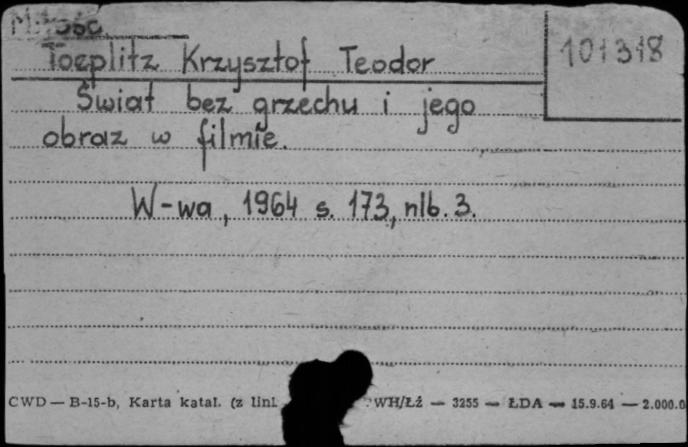 Miłość
101318
Toeplitz Krzysztof Teodor
Świat bez grzechu i jego
obraz w filmie.
W-wa, 1964 s. 173, nlb. 3.
CWD — B-15-b, Karta katal. (z lini WH/Łź — 3255 — ŁDA — 15.9.64 — 2.000.0